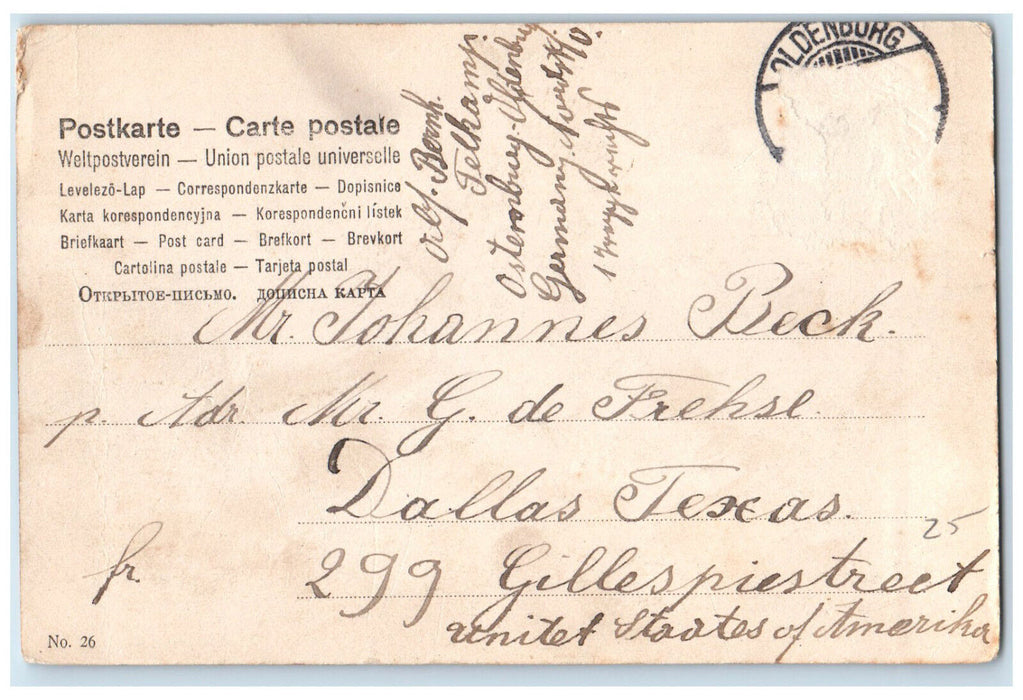 Postkarte — Carte postale
Weltpostverein — Union postale universelle
Levelező-Lap — Correspondenzkarte — Dopisnice
Karta korespondencyjna — Korespondenční lístek
Briefkaart — Post card — Brefkort — Brevkort
Cartolina postale — Tarjeta postal
Открытое-письмо. дописна карта
Bernh.
Telkamp.
Osternburg-Oldenburg
Germany.
OLDENBURG
Mr. Johannes Beck.
p. Adr. Mr. G. de Frehse.
Dallas Texas.
25
fr. 299 Gillespiestreet
unitet Staates of Amerika
No. 26